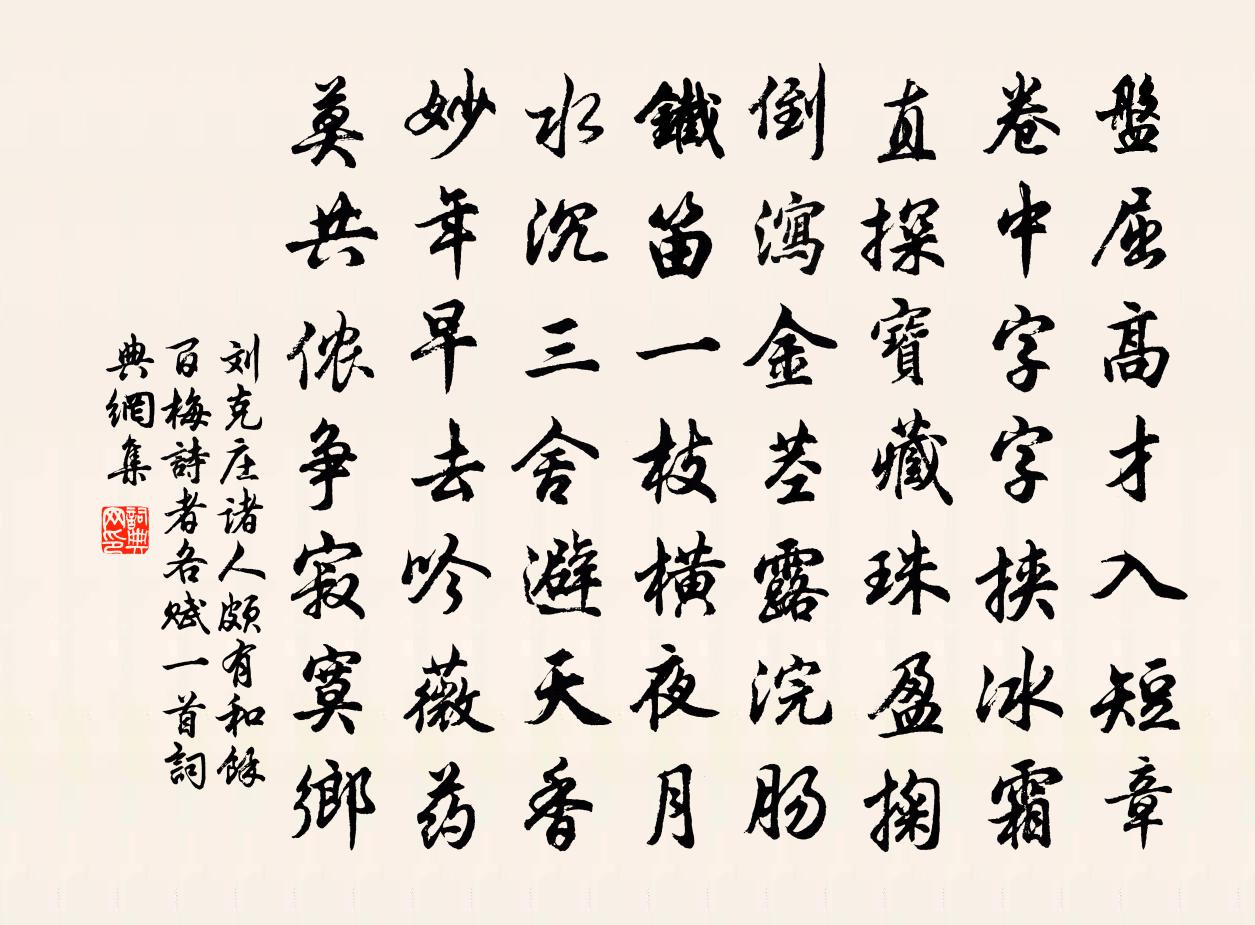 盤屈高才入短章
卷中字字挾冰霜
直探寶藏珠盈掬
倒瀉金茎露浣肠
鐵笛一枝橫夜月
水沉三舍避天香
妙年早去吟薇药
莫共侬争寂寞鄉
刘克庄诸人颇有和餘
百梅詩者各赋一首詞
典網集
詞典网印